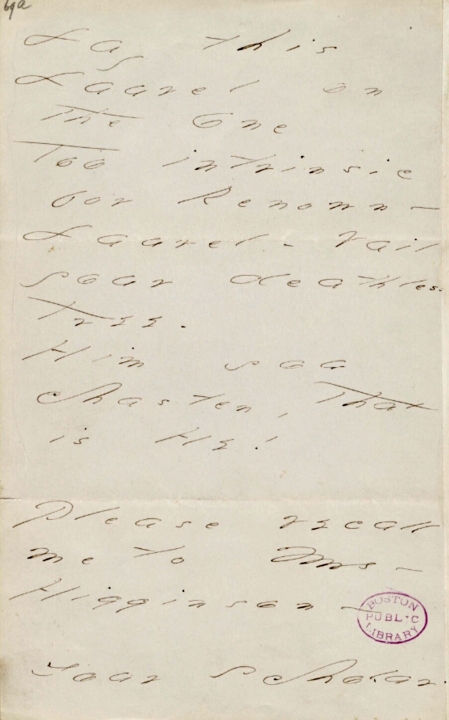 69a
Lay this
Laurel on
the One
Too intrinsic
for Renown -
Laurel - vail
your deathless
Tree.
Him you
chasten, that
is He!
Please recall
me to Mrs -
Higginson -
BOSTON
PUBLIC
LIBRARY
Your Scholar.